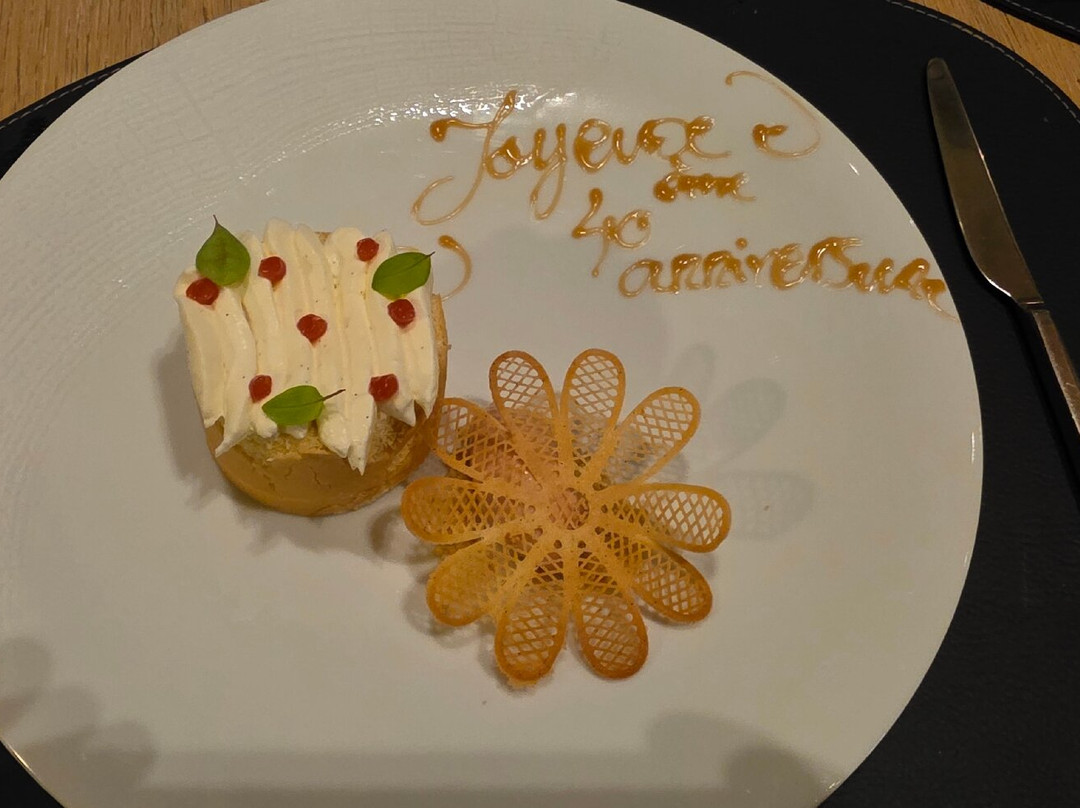 Joyeux
40ème
anniversaire